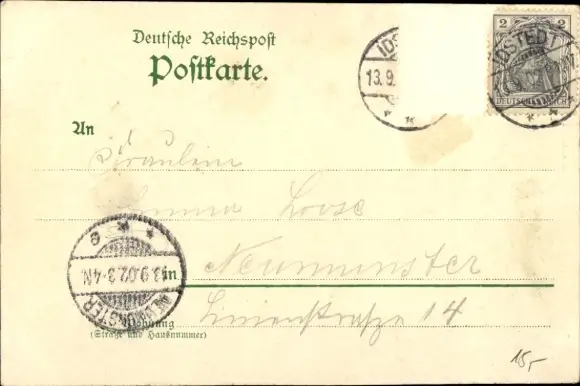 Deutsche Reichspost
Postkarte.
2
DEUTSCHES REICH
IDSTEDT
13.9.
An
Fräulein
Emma Loose
in Neumünster
Linienstraße 14
Wohnung
(Straße und Hausnummer)
NEUMÜNSTER
13.9.02.3-4N.
e
15,-